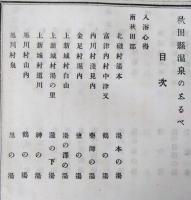 秋田縣温泉のしるべ
目次
入浴心得
南秋田郡
北磯村湯本 湯本の湯
富津内村中津又 鶴の湯
内川村淺見内 藥師の湯
金足村堀内 の湯
上新城村白山 湯の澤の湯
上新城村湯の里 瀧の下湯
上新城村道川 神の湯
旭川村山内 鶴の湯
旭川村泉 の湯